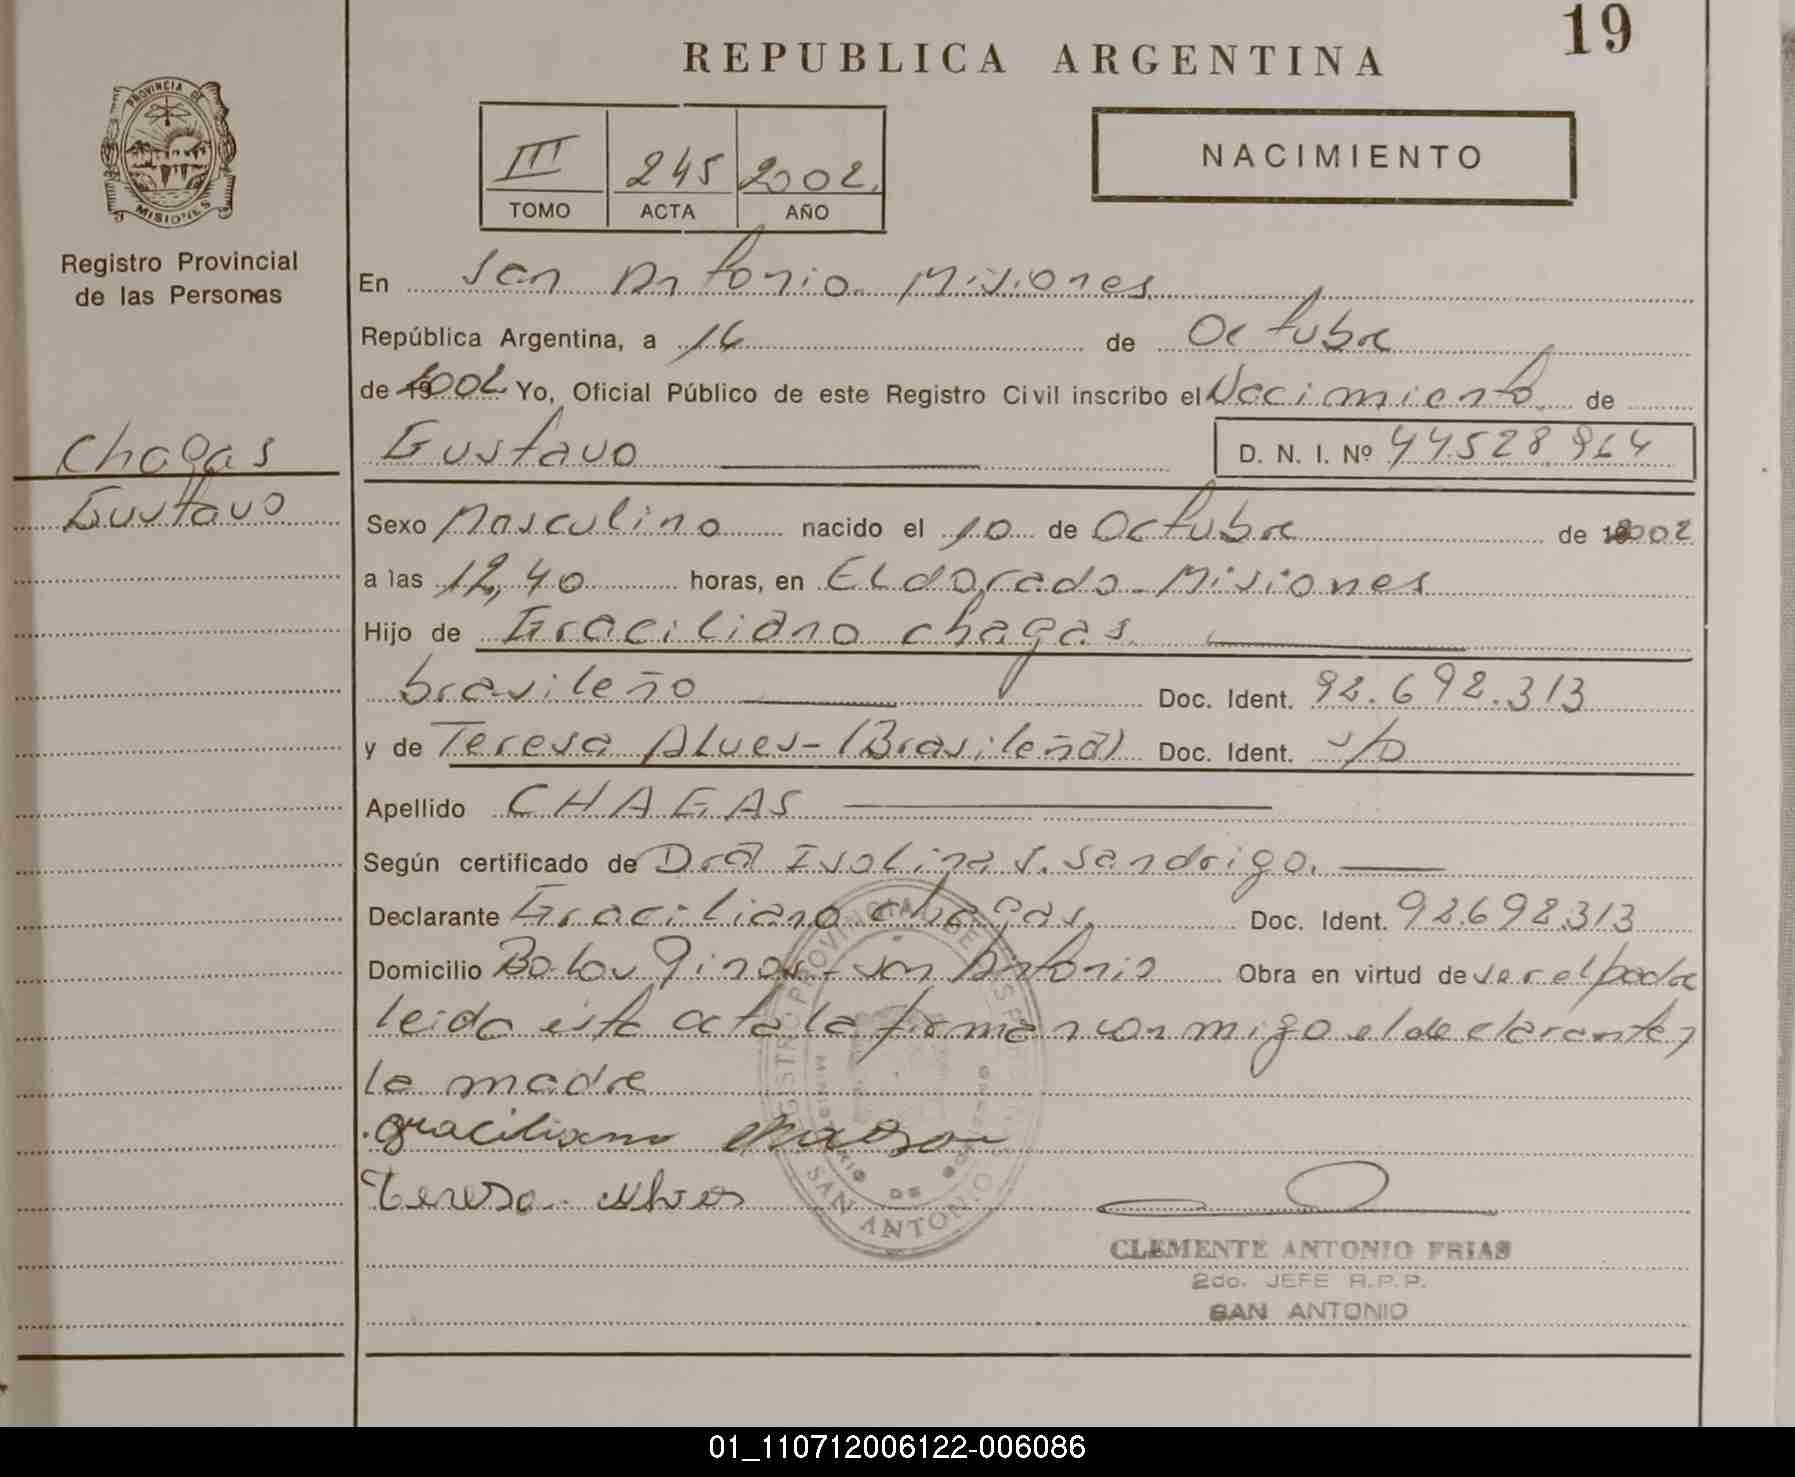 19
REPUBLICA ARGENTINA
PROVINCIA DE
MISIONES
III 245 2002.
TOMO ACTA AÑO
NACIMIENTO
Registro Provincial
de las Personas
En San Antonio Misiones
República Argentina, a 16 de Octubre
de 2002 Yo, Oficial Público de este Registro Civil inscribo el Nacimiento de
Chagas
Gustavo D. N. I. Nº 44528964
Gustavo
Sexo Masculino nacido el 10 de Octubre de 2002
a las 12,40 horas, en ELdorado - Misiones
Hijo de Graciliano Chagas
brasileño Doc. Ident. 92.692.313
y de Teresa Alves - (Brasileña) Doc. Ident. s/D
Apellido CHAGAS
Según certificado de Dra Isolina S. Sandrigo.
Declarante Graciliano Chagas Doc. Ident. 92.692313
Domicilio San Antonio Obra en virtud de ser el padre
leida esta acta la firman conmigo el declarante y
la madre
graciliano chagas
teresa Alves
REGISTRO PROVINCIAL DE LAS PERSONAS
MINISTERIO DE GOBIERNO
SAN ANTONIO
CLEMENTE ANTONIO FRIAS
2do. JEFE R.P.P.
SAN ANTONIO
01_110712006122-006086